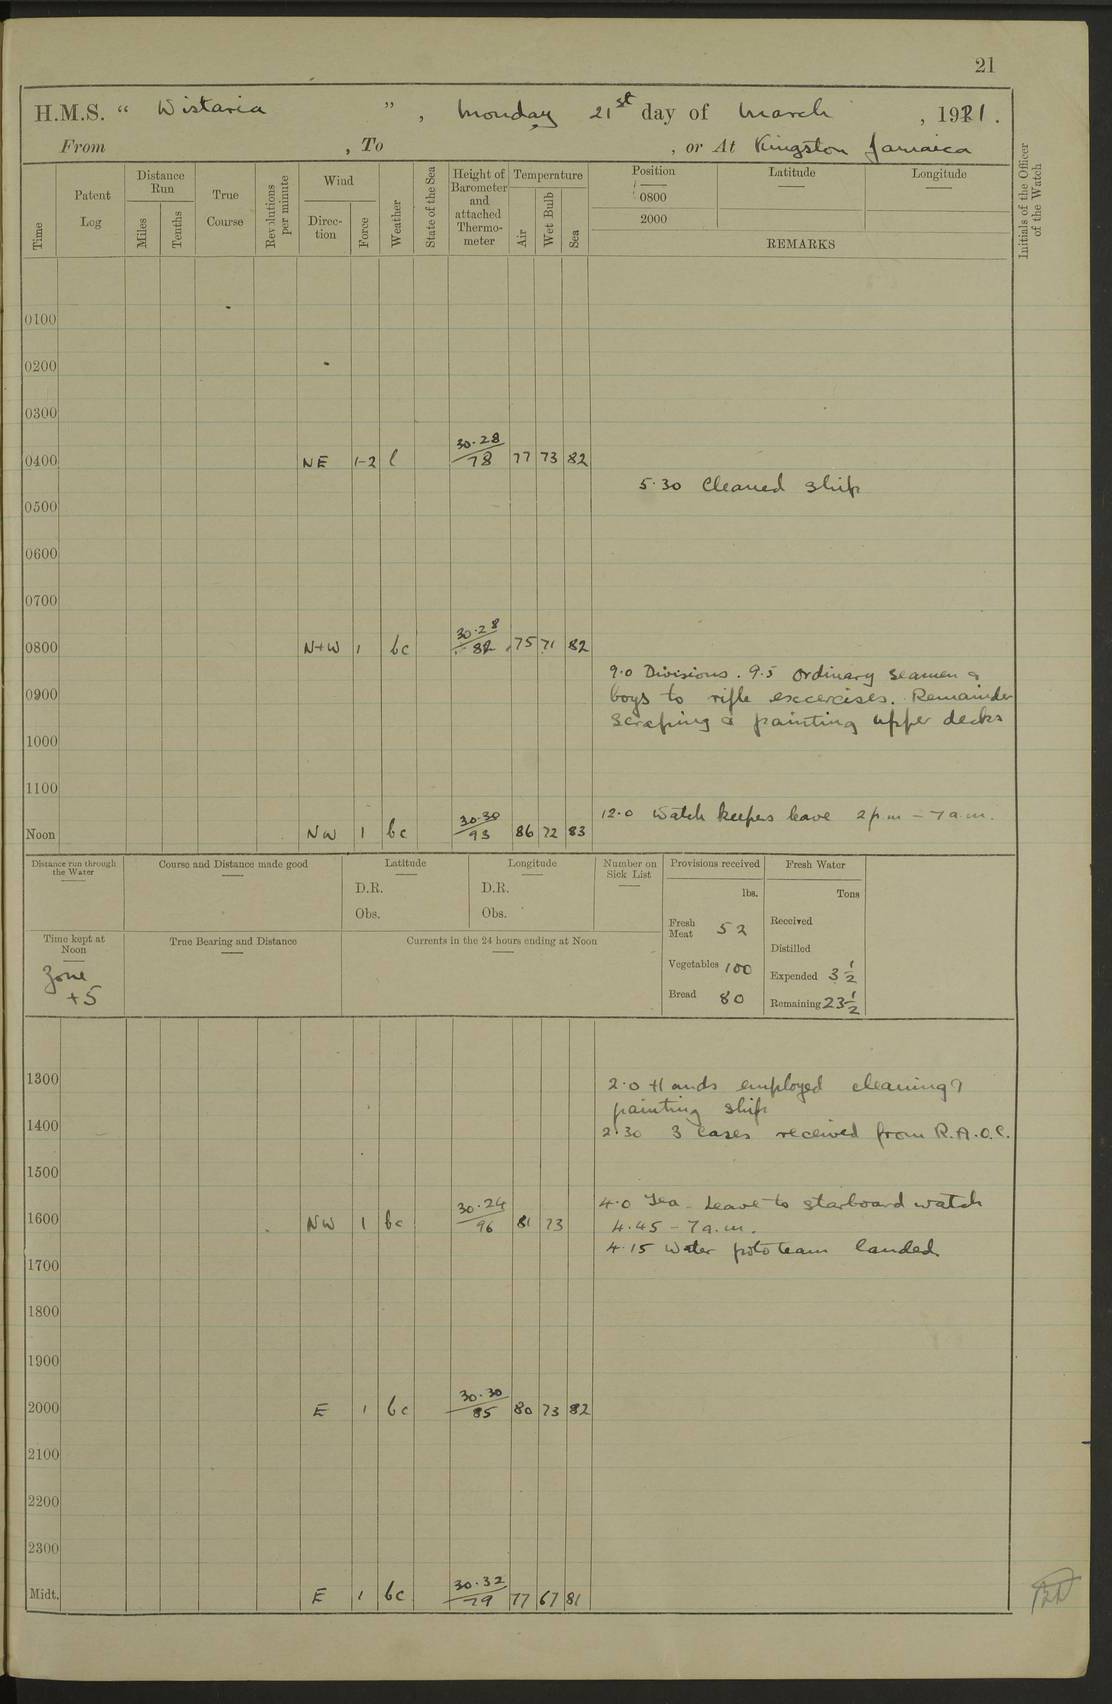 21
H.M.S. “ Wistaria ” , Monday 21st day of March , 1921.
From , To , or At Kingston Jamaica
Time
Patent Log
Distance Run
Miles
Tenths
True Course
Revolutions per minute
Wind
Direc-tion
Force
Weather
State of the Sea
Height of Barometer and attached Thermo-meter
Temperature
Air
Wet Bulb
Sea
Position
0800
2000
Latitude
Longitude
REMARKS
Initials of the Officer of the Watch
0100
0200
0300
0400 NE 1-2 30.28/78 77 73 82
5.30 Cleaned ship
0500
0600
0700
0800 N+W 1 bc 30.28/82 75 71 82
9.0 Divisions. 9.5 Ordinary seamen &
0900 boys to rifle excercises. Remainder
scraping & painting upper decks
1000
1100
12.0 Watch keepers leave 2 p.m - 7 a.m.
Noon NW 1 bc 30.30/93 86 72 83
Distance run through the Water
Course and Distance made good
Latitude
D.R.
Obs.
Longitude
D.R.
Obs.
Number on Sick List
Provisions received
lbs.
Fresh Meat 52
Vegetables 100
Bread 80
Fresh Water
Tons
Received
Distilled
Expended 3 1/2
Remaining 23 1/2
Time kept at Noon
Zone +5
True Bearing and Distance
Currents in the 24 hours ending at Noon
1300
2.0 Hands employed cleaning &
painting ship
1400
2.30 3 cases received from R.A.O.C.
1500
4.0 Tea. Leave to starboard watch
1600 NW 1 bc 30.24/96 81 73
4.45 - 7 a.m.
4.15 Water polo team landed
1700
1800
1900
2000 E 1 bc 30.30/85 80 73 82
2100
2200
2300
Midt. E 1 bc 30.32/79 77 67 81